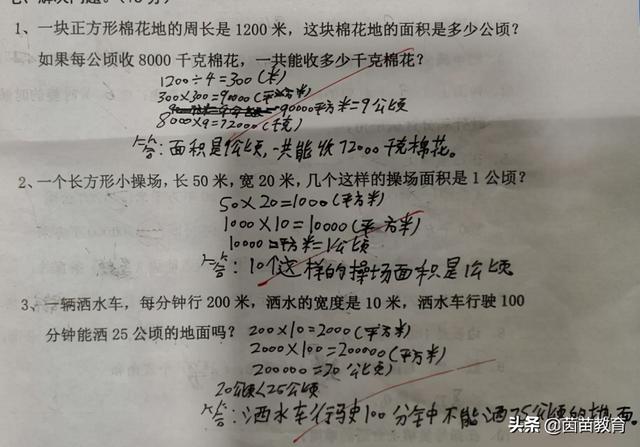 1、一块正方形棉花地的周长是1200米，这块棉花地的面积是多少公顷？
如果每公顷收8000千克棉花，一共能收多少千克棉花？
1200÷4=300(米)
300×300=90000(平方米)
90000平方米=9公顷
8000×9=72000(千克)
答：面积是9公顷，一共能收72000千克棉花。
2、一个长方形小操场，长50米，宽20米，几个这样的操场面积是1公顷？
50×20=1000(平方米)
1000×10=10000(平方米)
10000平方米=1公顷
答：10个这样的操场面积是1公顷
3、一辆洒水车，每分钟行200米，洒水的宽度是10米，洒水车行驶100
分钟能洒25公顷的地面吗？
200×10=2000(平方米)
2000×100=200000(平方米)
200000=20公顷)
20公顷<25公顷
答：洒水车行驶100分钟不能洒25公顷的地面。
头条 @茵苗教育